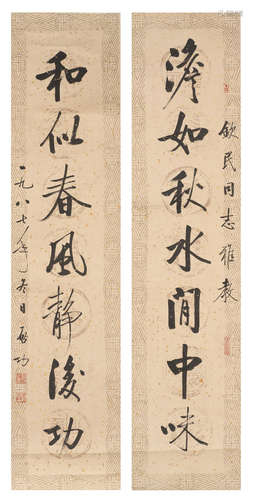 欽民同志雅教
澹如秋水閒中味
和似春風靜後功
一九八七年冬日啟功